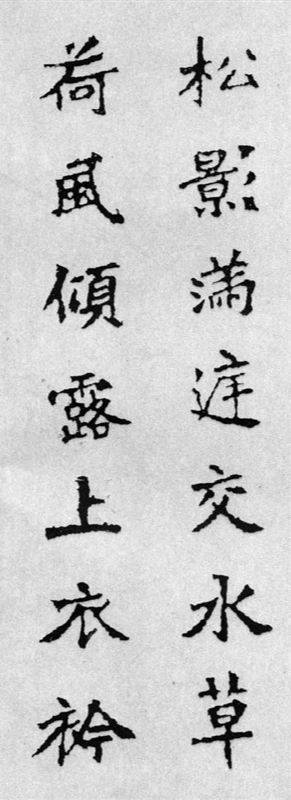 松影滿庭交水草
荷風傾露上衣衿